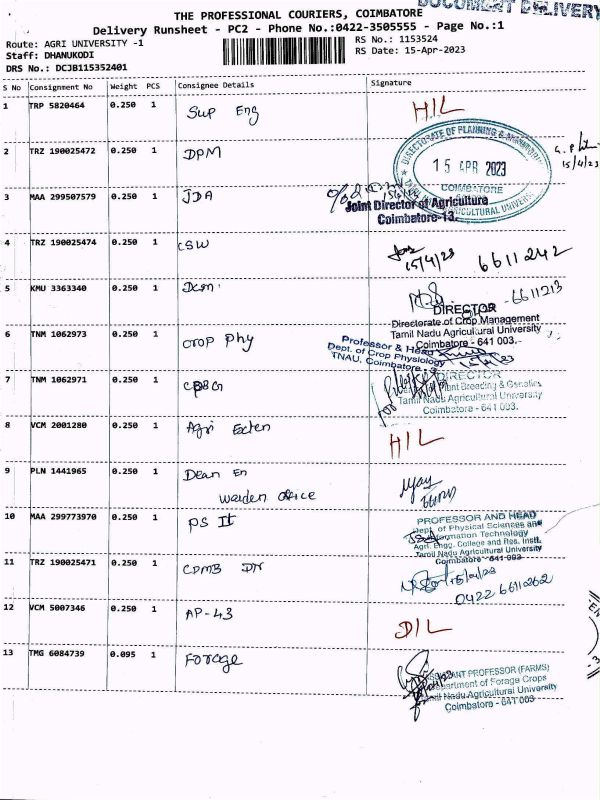 DOCUMENT DELIVERY
THE PROFESSIONAL COURIERS, COIMBATORE
Delivery Runsheet - PC2 - Phone No.:0422-3505555 - Page No.:1
Route: AGRI UNIVERSITY -1
RS No.: 1153524
Staff: DHANUKODI
RS Date: 15-Apr-2023
DRS No.: DCJB115352401
S No Consignment No Weight PCS Consignee Details Signature
1 TRP 5820464 0.250 1 Sup Eng H/L
DIRECTORATE OF PLANNING &
2 TRZ 190025472 0.250 1 DPM
15 APR 2023
15/4/23
COIMBATORE
3 MAA 299507579 0.250 1 JDA
Joint Director of Agriculture
AGRICULTURAL UNIVERS
Coimbatore-13.
4 TRZ 190025474 0.250 1 CSW
15/4/23 6611242
5 KMU 3363340 0.250 1 Dcm
6611213
DIRECTOR
Directorate of Crop Management
Tamil Nadu Agricultural University
Coimbatore - 641 003.
6 TNM 1062973 0.250 1 Crop Phy
Professor & Head
Dept. of Crop Physiology
TNAU, Coimbatore
15/4/23
7 TNM 1062971 0.250 1 CPBG
DIRECTOR
Plant Breeding & Genetics
Tamil Nadu Agricultural University
Coimbatore - 641 003.
8 VCM 2001280 0.250 1 Agri Exten H/L
9 PLN 1441965 0.250 1 Dean En
Warden office
10 MAA 299773970 0.250 1 PS It
PROFESSOR AND HEAD
Dept. of Physical Sciences and
Information Technology
Agri. Engg. College and Res. Instt.
Tamil Nadu Agricultural University
Coimbatore - 641 003
11 TRZ 190025471 0.250 1 CPMB
0422 6611262
12 VCM 5007346 0.250 1 AP-43 D/L
13 TMG 6084739 0.095 1 Forage
ASSISTANT PROFESSOR (FARMS)
Department of Forage Crops
Tamil Nadu Agricultural University
Coimbatore - 641 003